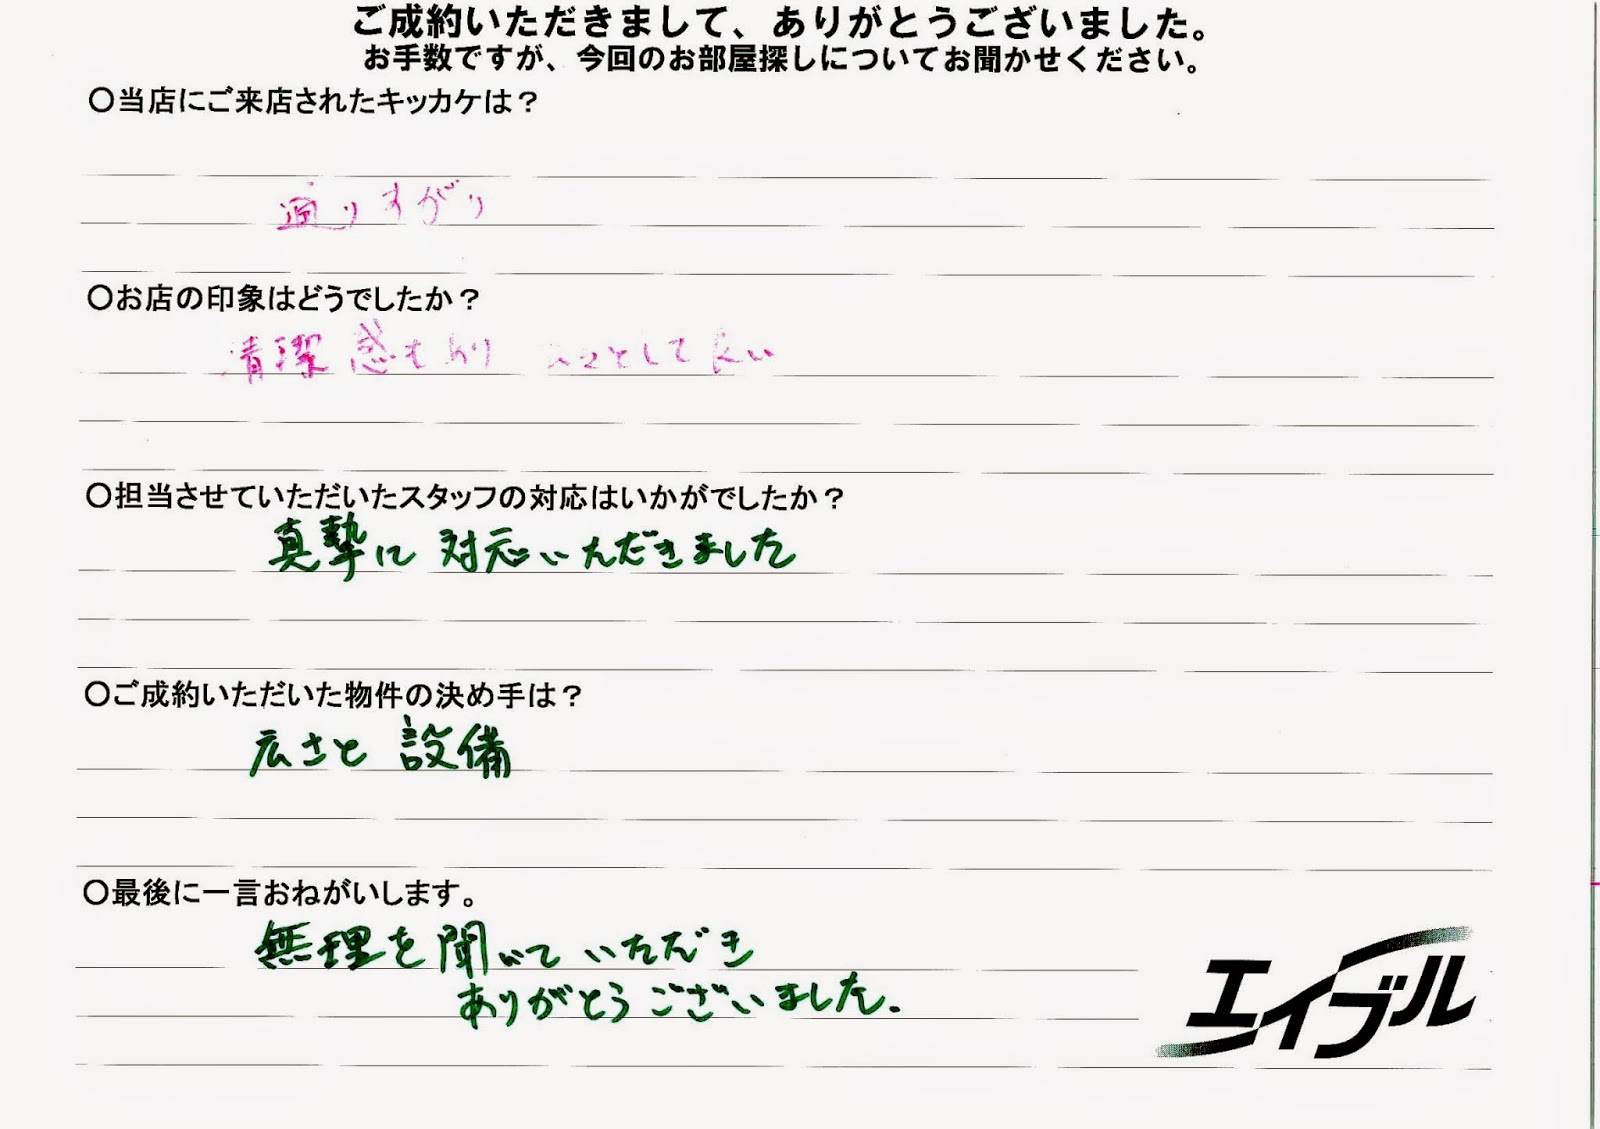 ご成約いただきまして、ありがとうございました。
お手数ですが、今回のお部屋探しについてお聞かせください。
〇当店にご来店されたキッカケは？
通りすがり
〇お店の印象はどうでしたか？
清潔感もあり として良い
〇担当させていただいたスタッフの対応はいかがでしたか？
真摯に対応いただきました
〇ご成約いただいた物件の決め手は？
広さと設備
〇最後に一言おねがいします。
無理を聞いていただき
ありがとうございました.
エイブル